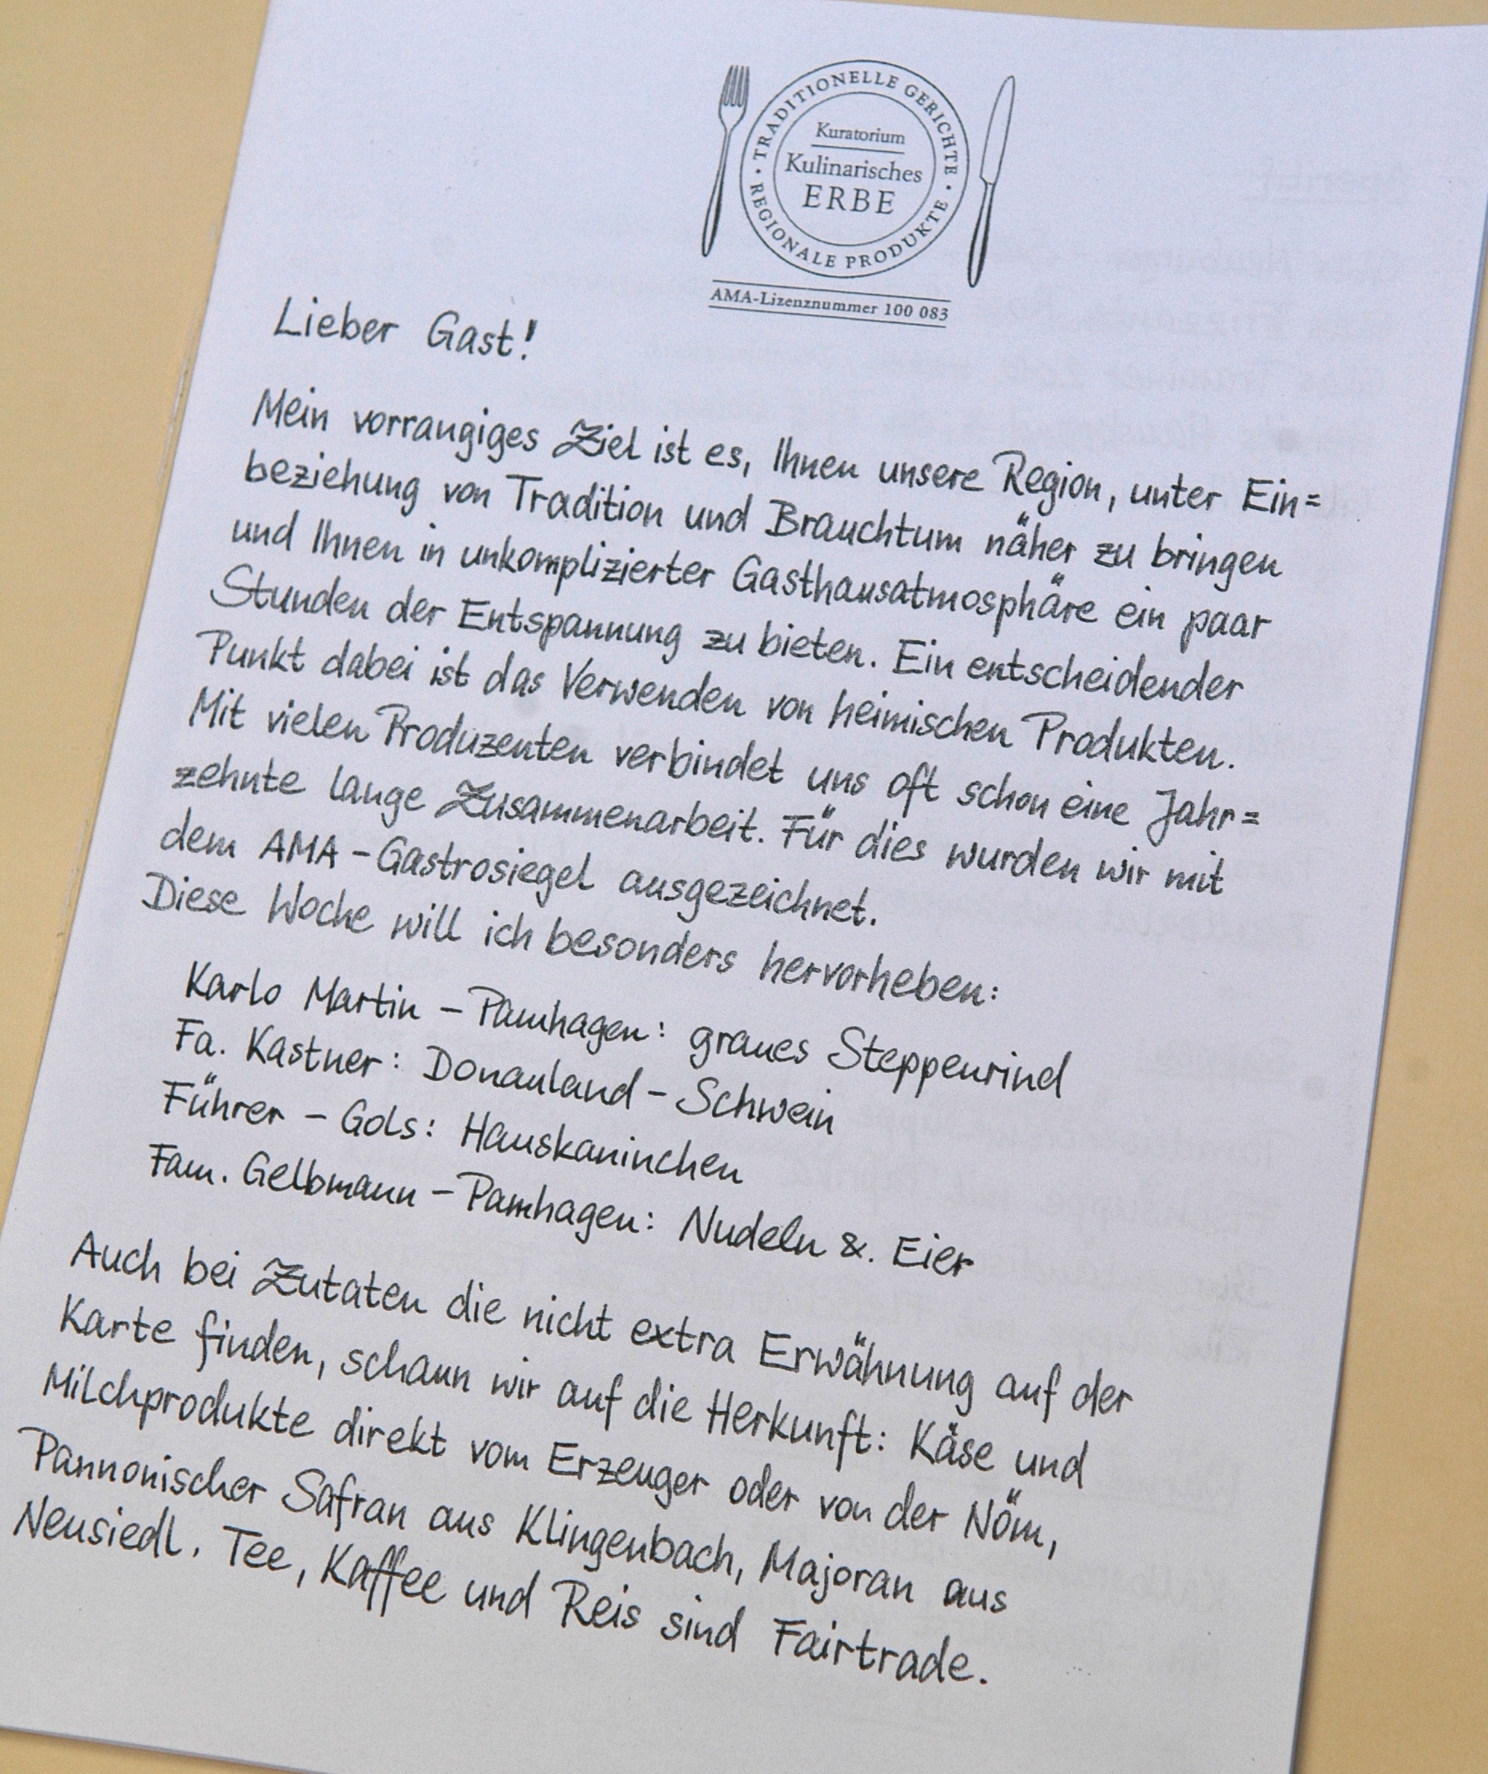 TRADITIONELLE GERICHTE
Kuratorium
Kulinarisches
ERBE
REGIONALE PRODUKTE
AMA-Lizenznummer 100 083
Lieber Gast!
Mein vorrangiges Ziel ist es, Ihnen unsere Region, unter Ein=
beziehung von Tradition und Brauchtum näher zu bringen
und Ihnen in unkomplizierter Gasthausatmosphäre ein paar
Stunden der Entspannung zu bieten. Ein entscheidender
Punkt dabei ist das Verwenden von heimischen Produkten.
Mit vielen Produzenten verbindet uns oft schon eine Jahr=
zehnte lange Zusammenarbeit. Für dies wurden wir mit
dem AMA-Gastrosiegel ausgezeichnet.
Diese Woche will ich besonders hervorheben:
Karlo Martin - Pamhagen: graues Steppenrind
Fa. Kastner: Donauland-Schwein
Führer - Gols: Hauskaninchen
Fam. Gelbmann - Pamhagen: Nudeln &. Eier
Auch bei Zutaten die nicht extra Erwähnung auf der
Karte finden, schaun wir auf die Herkunft: Käse und
Milchprodukte direkt vom Erzeuger oder von der Nöm,
Pannonischer Safran aus Klingenbach, Majoran aus
Neusiedl. Tee, Kaffee und Reis sind Fairtrade.